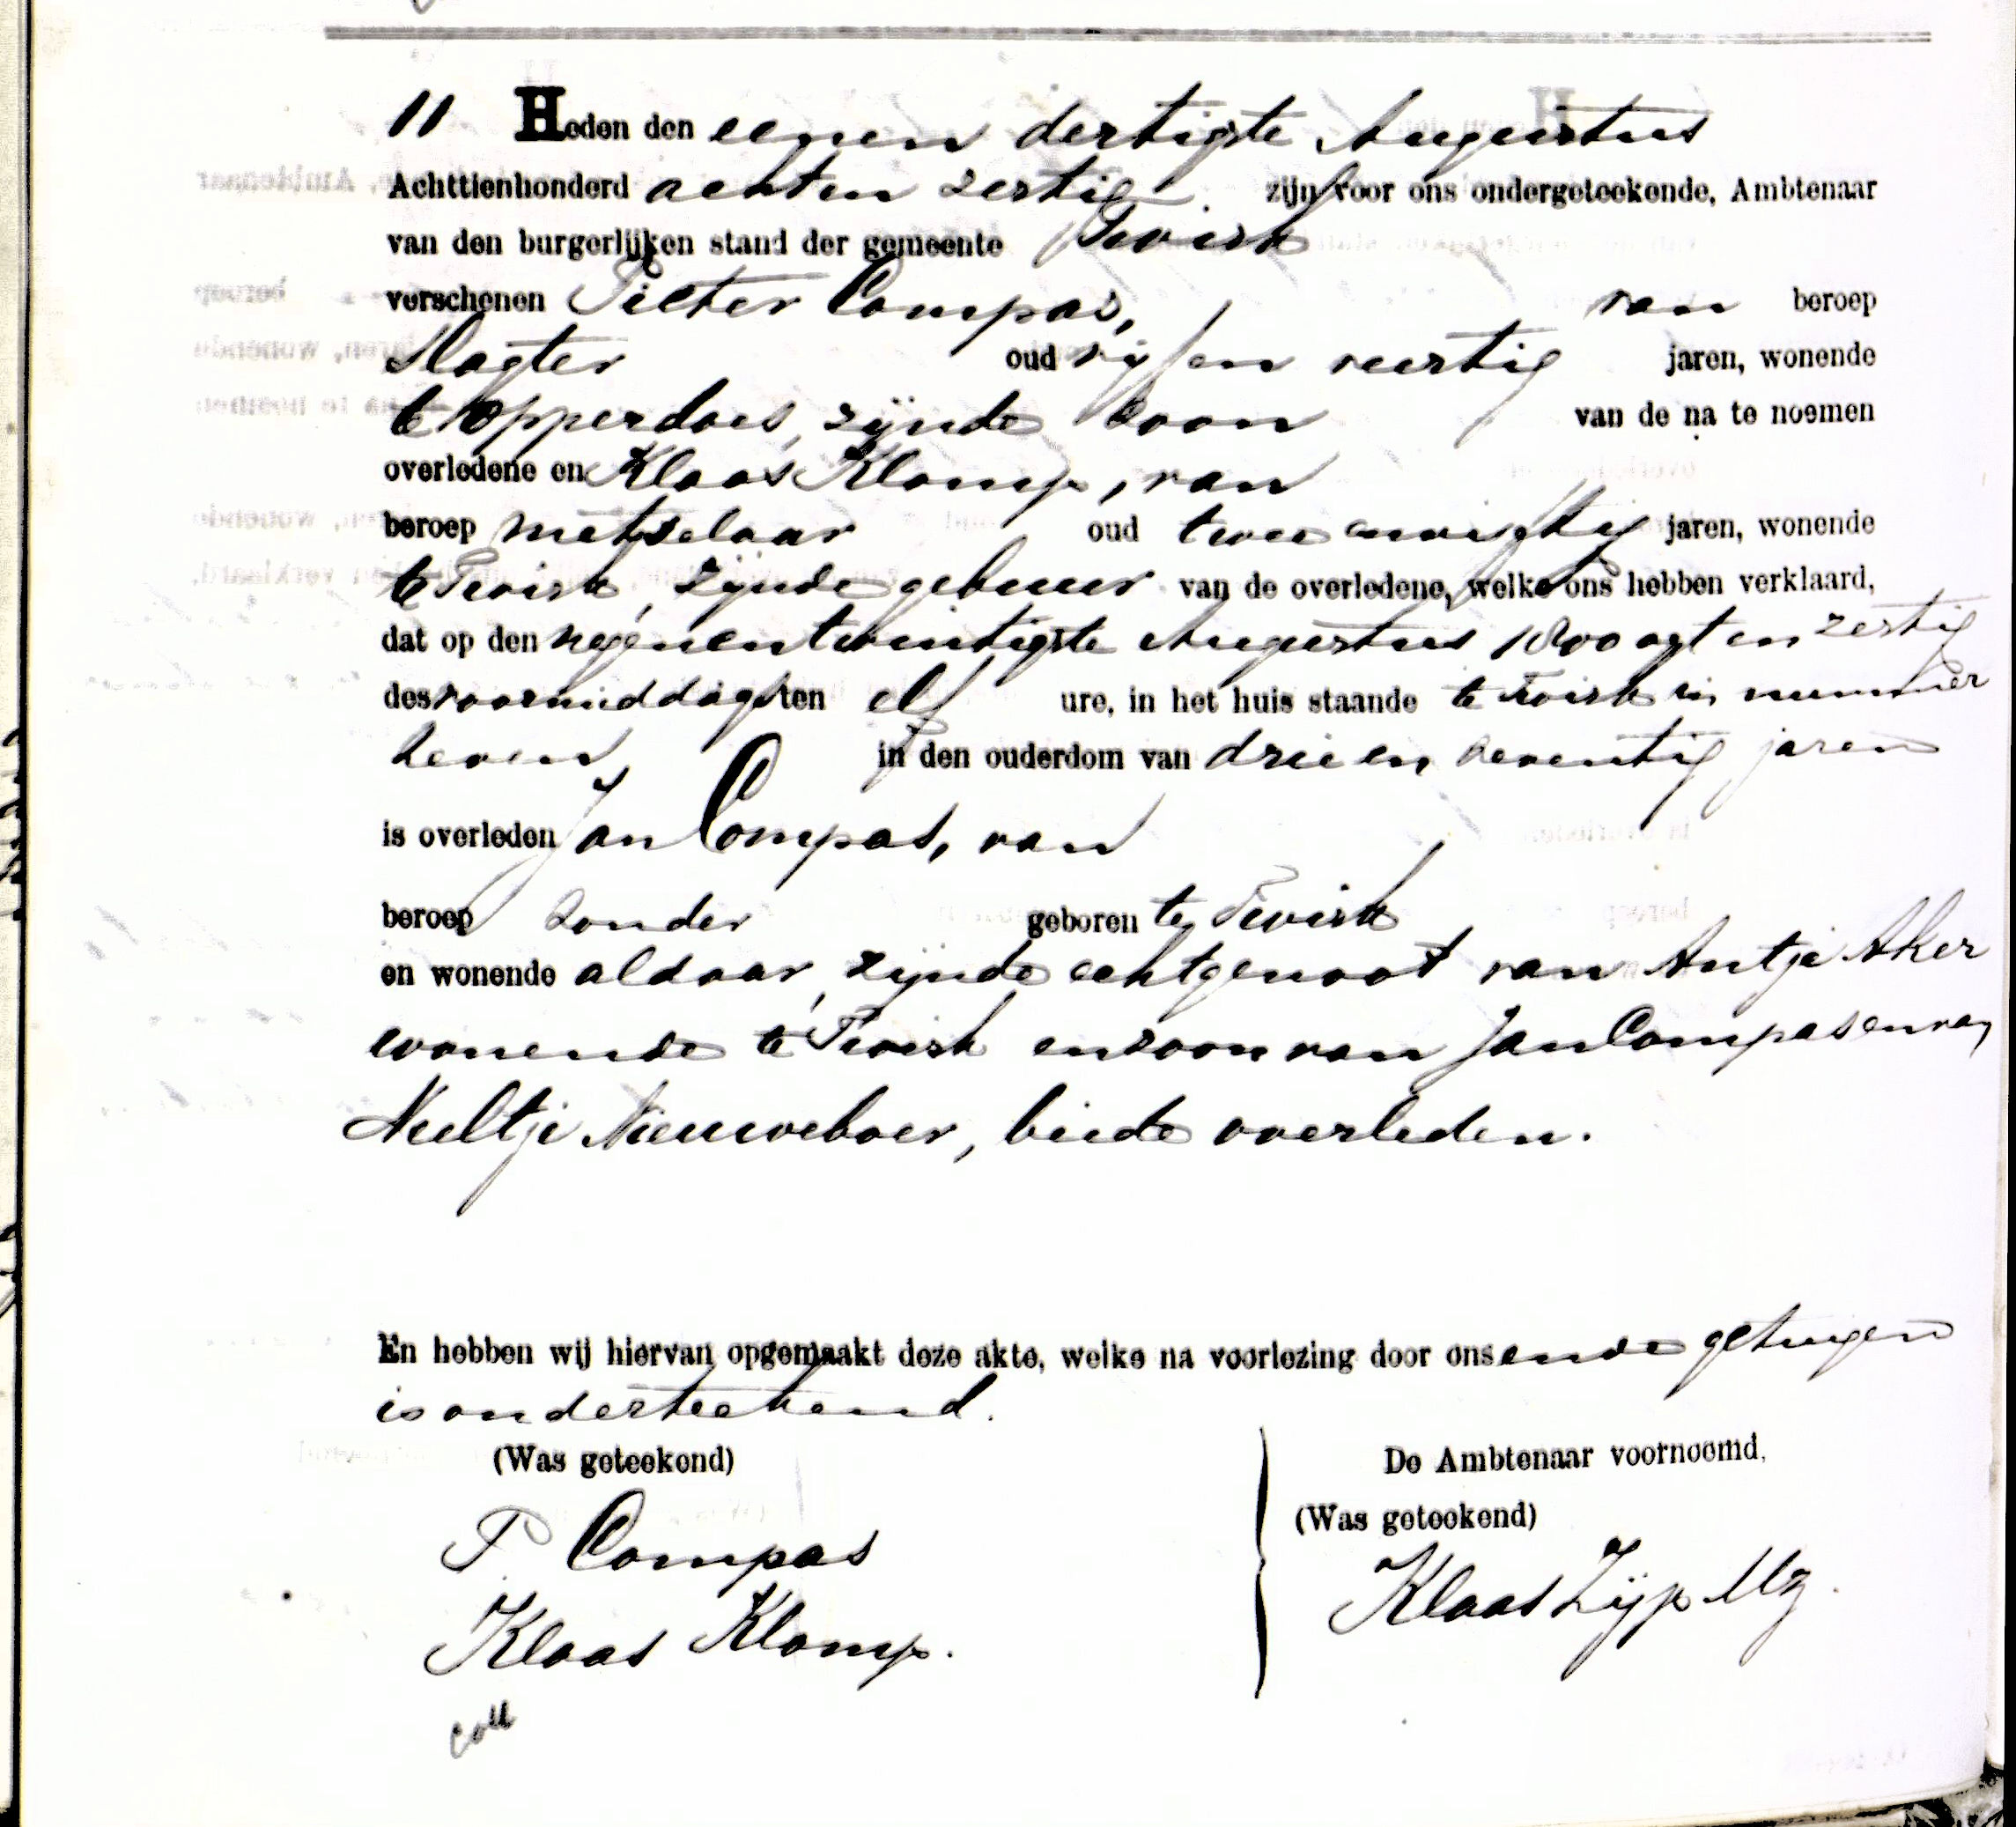 11 Heden den eenen dertigste Augustus
Achttienhonderd achten zestig zijn voor ons ondergeteekende, Ambtenaar
van den burgerlijken stand der gemeente Twisk
verschenen Pieter Compas, van beroep
Slagter oud vijf en veertig jaren, wonende
te Opperdoes, zijnde zoon van de na te noemen
overledene en Klaas Klomp, van
beroep metselaar oud twee en vijftig jaren, wonende
te Twisk, zijnde gebuur van de overledene, welke ons hebben verklaard,
dat op den negenentwintigste Augustus 1800 agt en zestig
des voormiddags ten elf ure, in het huis staande te Twisk in nummer
zeven in den ouderdom van drie en zeventig jaren
is overleden Jan Compas, van
beroep zonder geboren te Twisk
en wonende aldaar, zijnde echtgenoot van Antje Aker
wonende te Twisk en zoon van Jan Compas en van
Neeltje Nieuweboer, beide overleden.
En hebben wij hiervan opgemaakt deze akte, welke na voorlezing door ons en de getuigen
is onderteekend.
(Was geteekend) De Ambtenaar voornoemd,
(Was geteekend)
P Compas
Klaas Zijp Mz.
Klaas Klomp.
coll